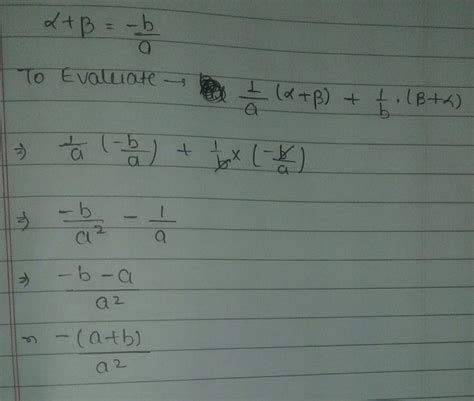 α+β = -b/a
To Evaluate → 1/a (α+β) + 1/b . (β+α)
⇒ 1/a (-b/a) + 1/b × (-b/a)
⇒ -b/a² - 1/a
⇒ -b-a/a²
-(a+b)/a²